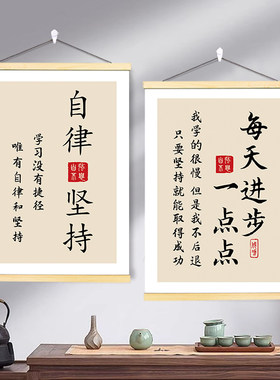 自律
坚持
学习没有捷径
唯有自律和坚持
每天进步
一点点
我学的很慢 但是我不后退
只要坚持就能取得成功